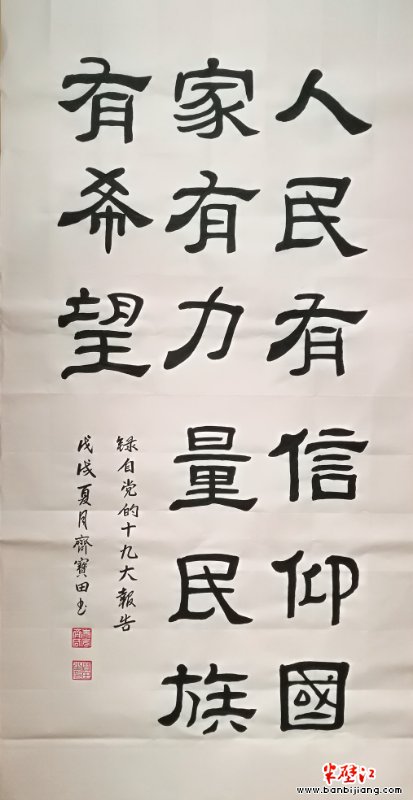 人民有信仰國
家有力量民族
有希望
録自党的十九大報告
戊戌夏月齊寶田书
半壁江
www.banbijiang.com